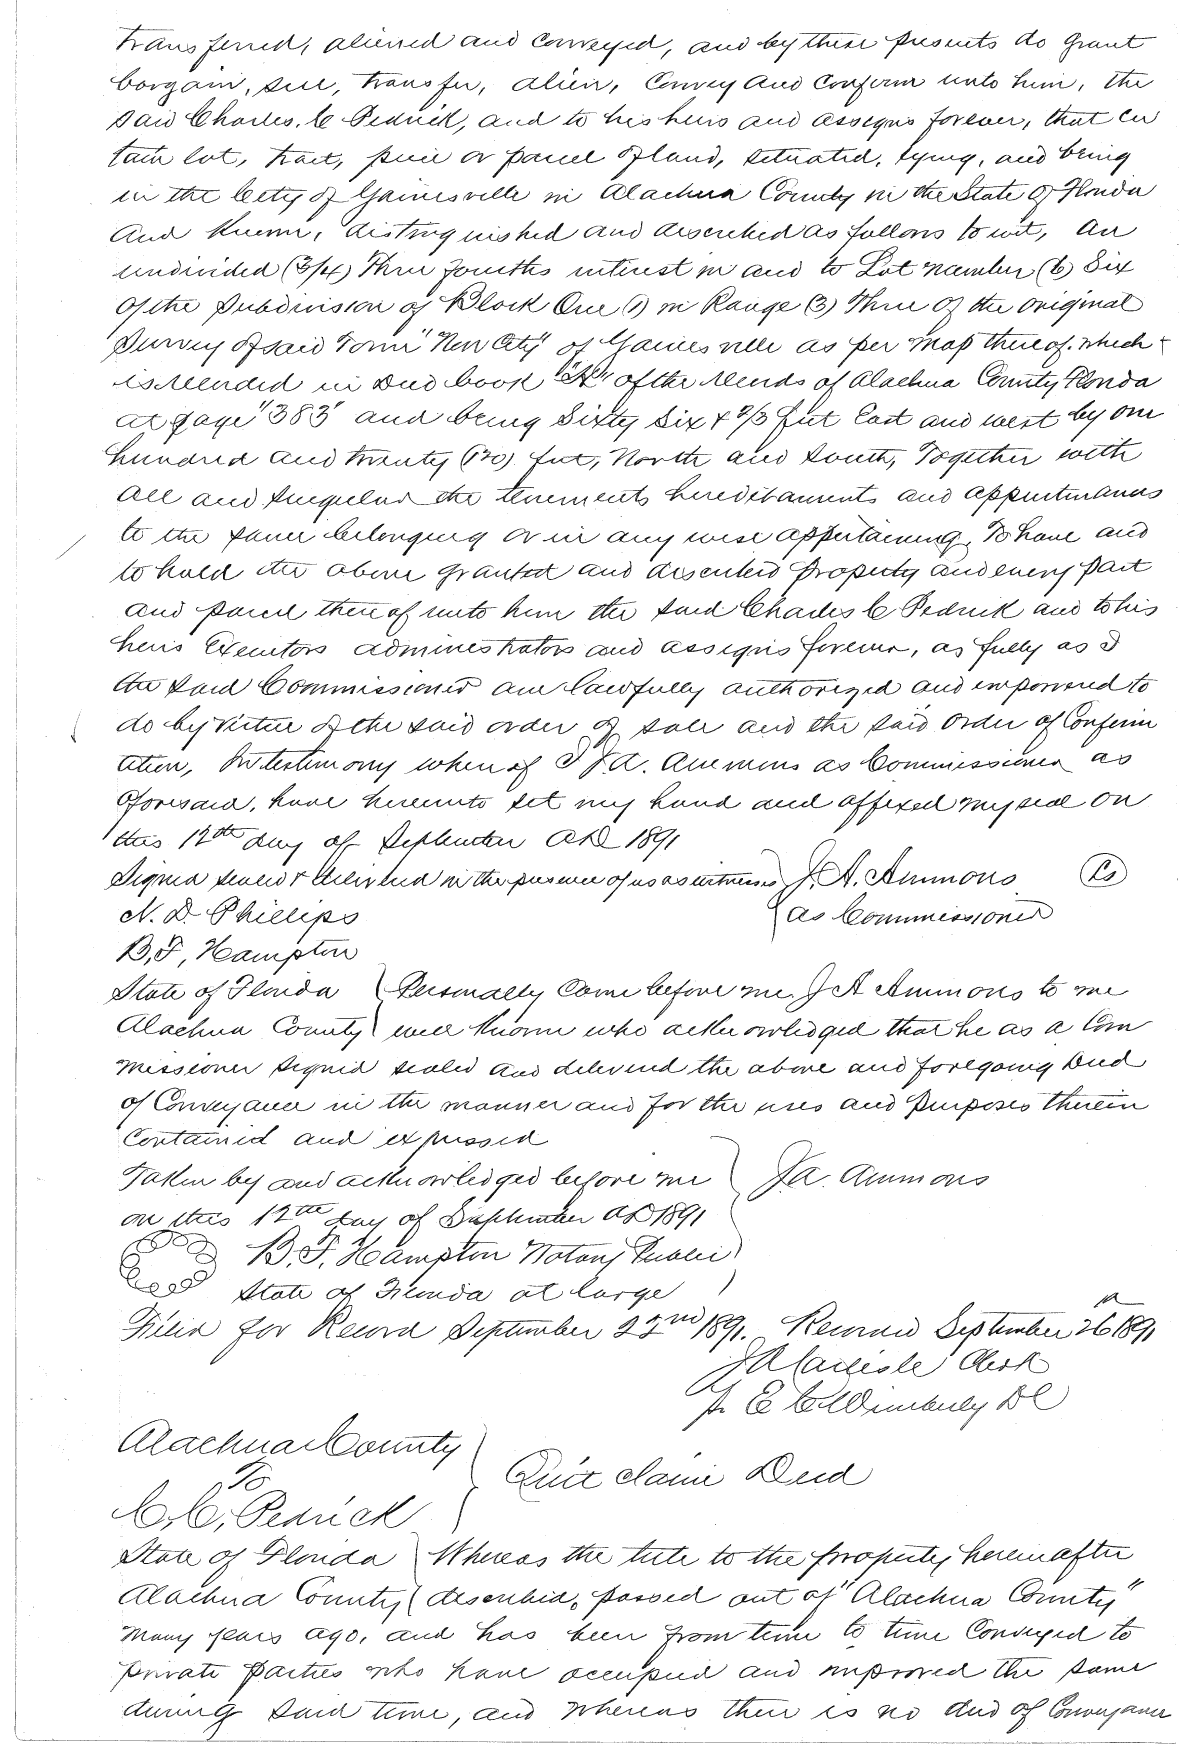 transferred, aliened and conveyed, and by these presents do grant
bargain, sell, transfer, alien, Convey and Confirm unto him, the
said Charles. C Pedrick, and to his heirs and assigns forever, that cer
tain lot, tract, piece or parcel of land, situated, lying, and being
in the City of Gainesville in Alachua County in the State of Florida
and known, distinguished and described as follows to wit, An
undivided (3/4) Three fourths interest in and to Lot number (6) Six
of the Subdivision of Block One (1) in Range (3) Three of the original
Survey of said Town "New City" of Gainesville as per map thereof. which
is recorded in Deed book "A" of the records of Alachua County Florida
at page "383" and being Sixty Six & 2/3 feet East and west by one
hundred and twenty (120) feet, North and South, Together with
all and singular the tenements hereditaments and appurtenances
to the same belonging or in any wise appertaining, To have and
to hold the above granted and described property and every part
and parcel thereof unto him the said Charles C Pedrick and to his
heirs Executors administrators and assigns forever, as fully as I
the said Commissioner am lawfully authorized and empowered to
do by virtue of the said order of sale and the said order of Confirm
ation, In testimony whereof I J. A. Ammons as Commissioner as
aforesaid, have hereunto set my hand and affixed my seal on
this 12th day of September AD 1891
Signed sealed & delivered in the presence of us as witnesses J. A. Ammons (Ls)
N. D. Phillips as Commissioner
B, F, Hampton
State of Florida Personally Came before me, J A Ammons to me
Alachua County well known who acknowledged that he as a Com
missioner signed sealed and delivered the above and foregoing Deed
of Conveyance in the manner and for the uses and purposes therein
Contained and expressed
Taken by and acknowledged before me J. A. Ammons
on this 12th day of September AD 1891
B. F. Hampton Notary Public
State of Florida at large
Filed for Record September 22nd 1891. Recorded September 26 1891
J A Carlisle Clerk
E C Wimberly DC
Alachua County
To Quit claim Deed
C. C, Pedrick
State of Florida Whereas the title to the property hereinafter
Alachua County described, passed out of "Alachua County"
many years ago, and has been from time to time Conveyed to
private parties who have occupied and improved the same
during said time, and Whereas there is no deed of Conveyance